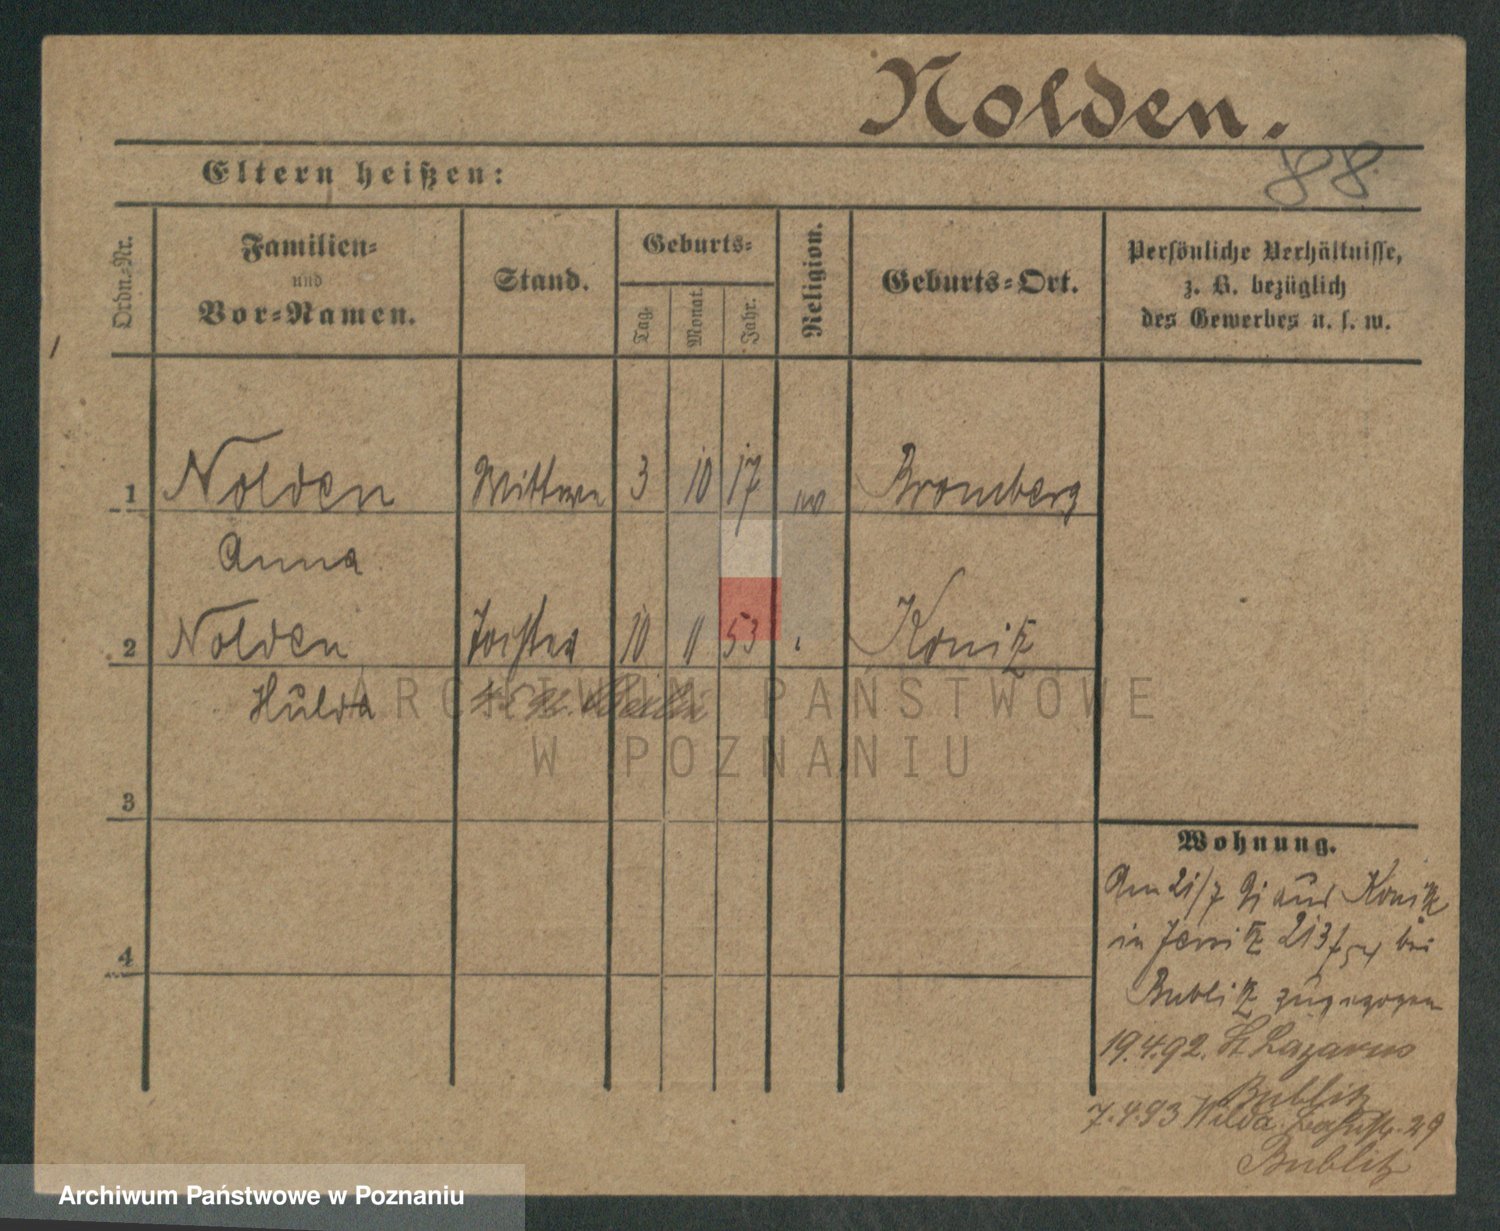 Nolden.
88.
Eltern heißen:
Ordn.-Nr.
Familien-
und
Vor-Namen.
Stand.
Geburts-
Tag.
Monat.
Jahr.
Religion.
Geburts-Ort.
Persönliche Verhältnisse,
z. B. bezüglich
des Gewerbes u. s. w.
1 Nolden Wittwe 3 10 17 ev Bromberg
Anna
2 Nolden Tochter 10 11 53 Konitz
Hulda
ARCHIWUM PAŃSTWOWE
W POZNANIU
3
4
Wohnung.
Am 21/7 91 aus Konitz
in Jersitz 213 bei
Bublitz zugezogen
19.4.92. St Lazarus
Bublitz
7.4.93 Wilda 29
Bublitz
Archiwum Państwowe w Poznaniu